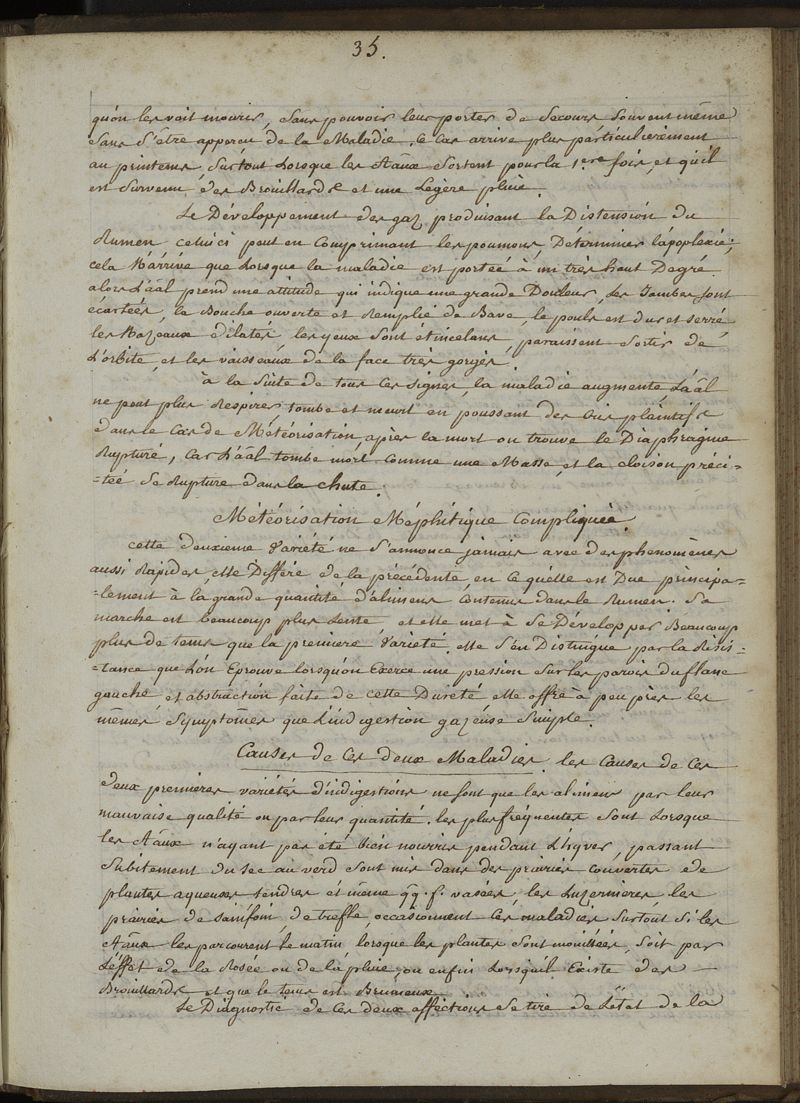 35.
qu'on les voit mourir, sans pouvoir leur porter de secours souvent même
sans s'être apperçu de la Maladie. Ce cas arrive plus particulièrement
au printems, surtout Lorsque les Aãux sortent pour la 1.ere fois, et qu'il
est survenu des Brouillards et une Légère pluie.
Le Développement des gaz produisant la Distension du
Rumen celui ci peut en Comprimant les poumons, Déterminer l'apoplexie;
cela N'arrive que Lorsque la maladie est portée à un très haut Degré
alors L'aãl prend une attitude qui indique une grande Douleur, les Jambes sont
écartées, la Bouche ouverte et Remplie de Bave, le pouls est dur et serré
les Nazeaux dilatés, les yeux sont étincelans, paraissent sortir de
L'orbite, et les vaisseaux de la face très gorgés.
à la suite de tous ces signes, la maladie augmente, L'aãl
ne peut plus Respirer, tombe et meurt en poussant des cris plaintifs
dans le Cas de Météorisation, après la mort on trouve le Diaphragme
Rupturé, Car L'aãl tombe mort Comme une Masse, et la cloison préci-
-tée se Rupture dans la chute.
Météorisation Méphitique Compliquée.
cette deuxieme Variété ne s'annonce jamais avec des phenomènes
aussi Rapides, elle Différe de la précédente, en ce qu'elle est Due principa-
-lement à la grande quantité d'alimens, contenus dans le Rumen. Sa
marche est beaucoup plus Lente et elle met à se Développer Beaucoup
plus de tems que la premiere Variété. elle s'en Distingue par la Résis-
-tance que L'on Eprouve lorsqu'on Exerce une pression sur les parois du flanc
gauche, et abstraction faite de cette Dureté elle offre à peu près les
mêmes symptômes que L'indigestion gazeuse Simple.
Causes de Ces deux Maladies. les Causes de Ces
deux premieres variétés d'indigestions ne sont que les alimens par leur
mauvaise qualité ou par leur quantité. les plus fréquentes sont Lorsque
les Aãux n'ayant pas été bien nourris pendant L'hyver, passant
subitement du sec au verd sont mis dans des prairies couvertes de
plantes aqueuses tendres et même qq. f. vasées, les Luzernieres, les
prairies de sainfoin, de treffle, occasionnent Ces maladies surtout si les
Aãux les parcourent le matin, lorsque les plantes sont mouillées, soit par
L'éffet de la Rosée ou de la pluie, ou enfin Lorsqu'il Existe des
Brouillards et que le tems est Brumeux.
Le Diagnostic de Ces deux affections se tire de L'état de la